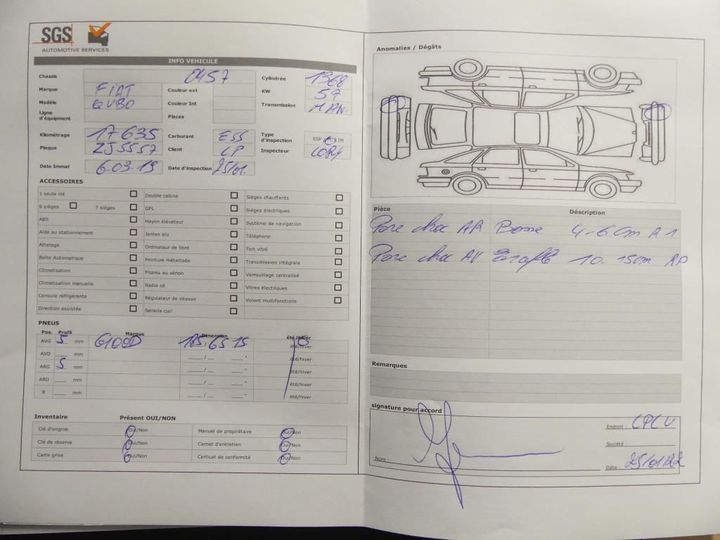 SGS
AUTOMOTIVE SERVICES
INFO VEHICULE
Chassis 0457 Cylindrée 1368
Marque FIAT Couleur ext KW 57
Modèle QUBO Couleur Int Transmission MAN
Ligne d'équipement Places
Kilométrage 17635 Carburant ESS Type d'inspection
Plaque 255557 Client LP Inspecteur
Date Immat 6.03.19 Date d'inspection 25/01
ACCESSOIRES
1 seule clé Double cabine Sièges chauffants
6 sièges 7 sièges GPL Sièges électriques
ABS Hayon élévateur Système de navigation
Aide au stationnement Jantes alu Téléphone
Attelage Ordinateur de bord Toit vitré
Boîte Automatique Peinture métallisée Transmission intégrale
Climatisation Phares au xénon Verrouillage centralisé
Climatisation manuelle Radio cd Vitres électriques
Console réfrigérante Régulateur de vitesse Volant multifonctions
Direction assistée Sellerie cuir
PNEUS
Pos. Profil Marque Dimension été/hiver
AVG 5 mm GOOD 185.65 15 été/hiver
AVD mm __/__ __ été/hiver
ARG 5 mm __/__ __ été/hiver
ARD mm __/__ __ été/hiver
R mm __/__ __ été/hiver
Inventaire Présent OUI/NON
Clé d'origine Oui/Non Manuel de propriétaire Oui/Non
Clé de réserve Oui/Non Carnet d'entretien Oui/Non
Carte grise Oui/Non Certicat de conformité Oui/Non
Anomalies / Dégâts
Pièce Déscription
Pare choc AR Bosse 4-6cm A1
Pare choc AV 10.15cm
Remarques
signature pour accord
Endroit : CPCU
Société :
Nom : Date : 25/01/22